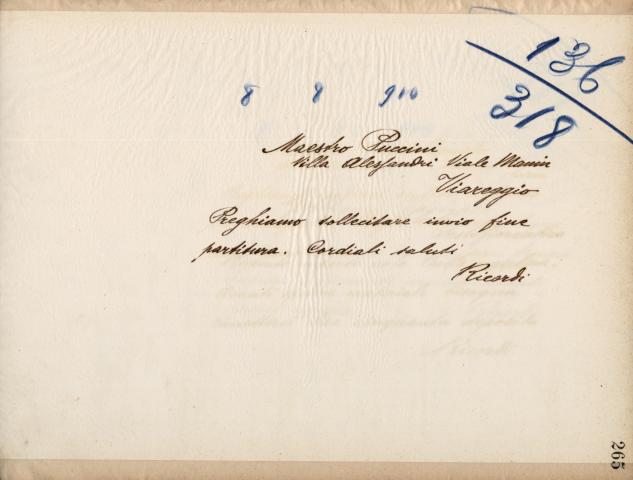 136
318
8 8 910
Maestro Puccini
Villa Alessandri Viale Manin
Viareggio
Preghiamo sollecitare invio fine
partitura. Cordiali saluti
Ricordi
265